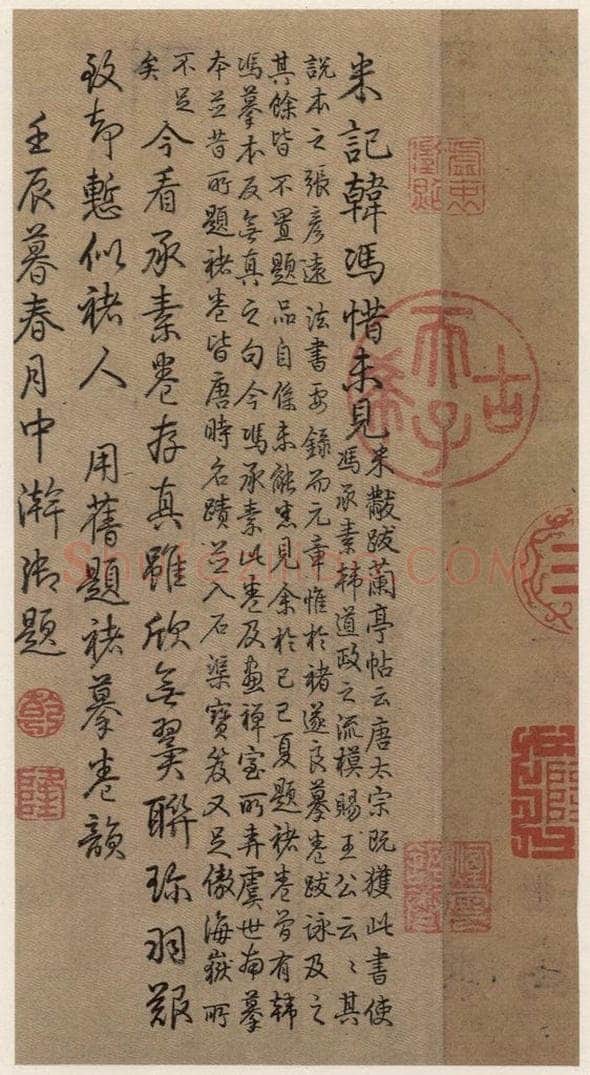 米記韓馮惜未見
米黻跋蘭亭帖云唐太宗既獲此書使
馮承素韓道政之流模賜王公云云其
說本之張彥遠法書要錄而元章惟於褚遂良摹卷跋詠及之
其餘皆不置題品自係未能悉見余於己巳夏題褚卷曾有韓
馮摹本反無真之句今馮承素此卷及畫禪室所弆虞世南摹
本並昔所題褚卷皆唐時名蹟並入石渠寶笈又足傲海嶽所
不足
矣
今看承素卷存真雖欣無翼聯珍羽艱
致却慙似褚人 用舊題褚摹卷韻
壬辰暮春月中澣御題
乾
隆
古希天子